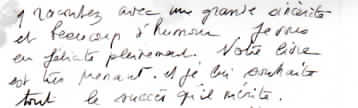 y racontez avec une grande sincérité
et beaucoup d'humour. Je vous
en félicite pleinement. Votre livre
est très prenant. et je lui souhaite
tout le succès qu'il mérite.